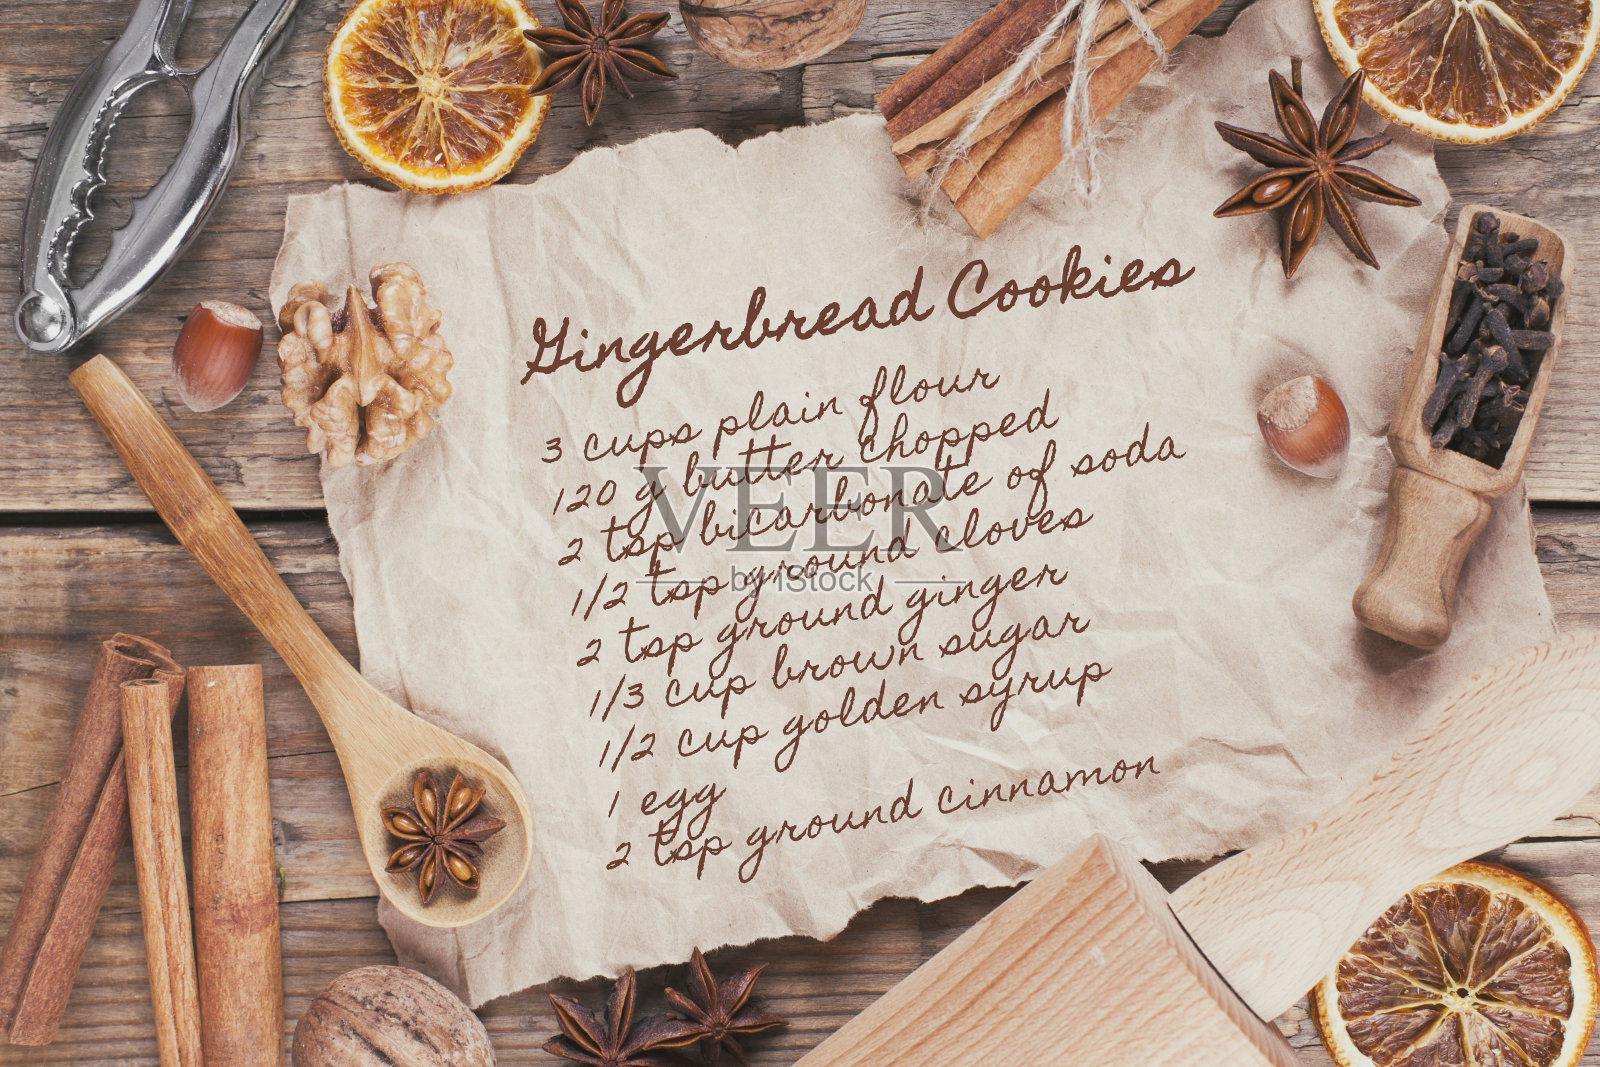 Gingerbread Cookies
3 cups plain flour
120 g butter chopped
2 tsp bicarbonate of soda
1/2 tsp ground cloves
2 tsp ground ginger
1/3 cup brown sugar
1/2 cup golden syrup
1 egg
2 tsp ground cinnamon
VEER
by iStock